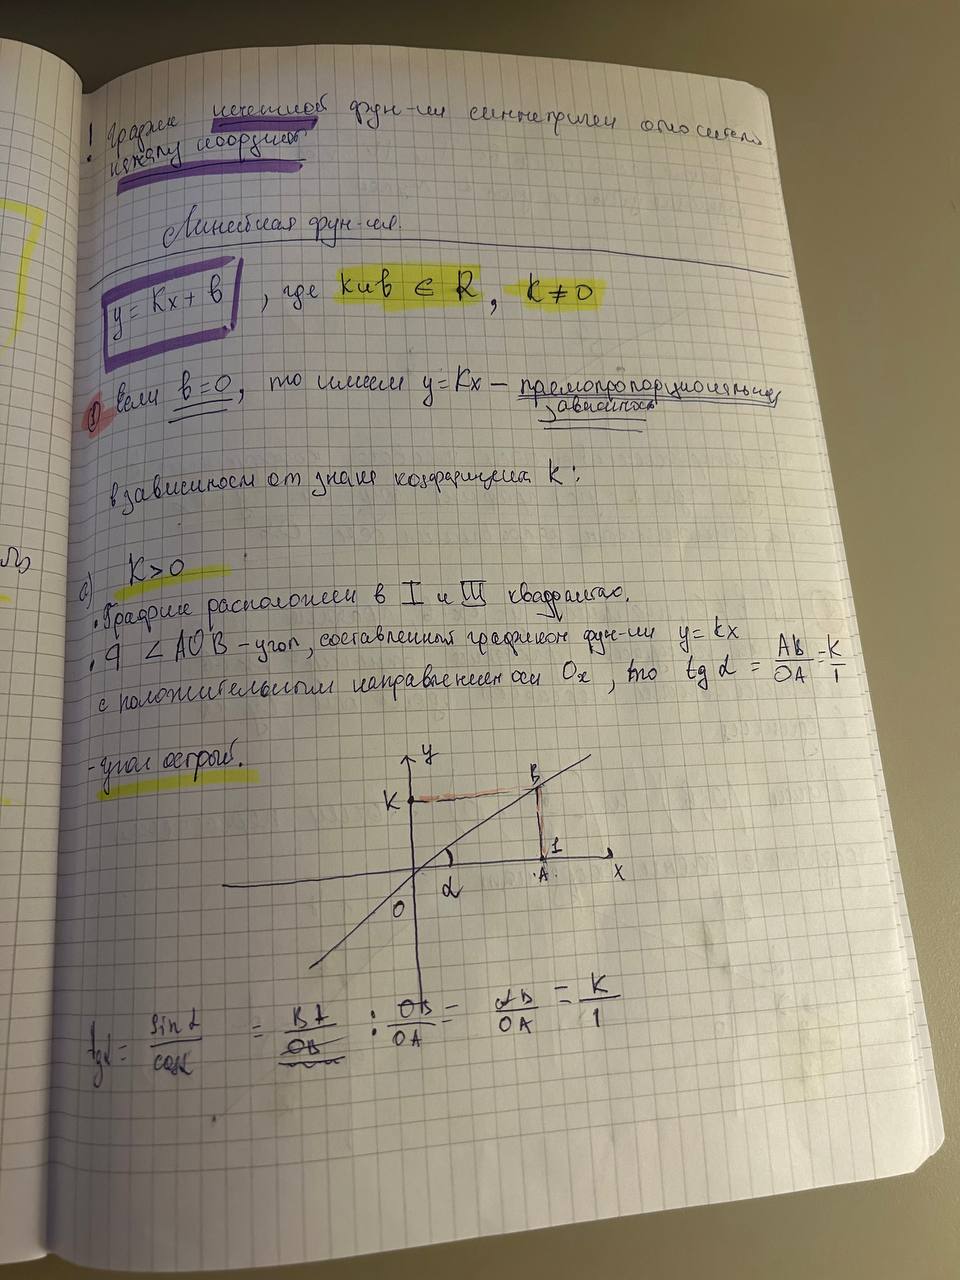 ! График нечетной фун-ии симметричен относительно
началу координат
Линейная фун-ия.
y = Kx + b , где k и b ∈ R, K ≠ 0
① Если b = 0, то имеем y = Kx – прямопропорциональная
зависимость
в зависимости от знака коэффициента K:
a) K > 0
. График расположен в I и III квадрантах.
. ∠AOB – угол, составленный графиком фун-ии y = kx
с положительным направлением оси Ox, то tg α = AB/OA = K/1
- угол острый.
y
K
B
1
A
x
α
O
tgα = sin α/cos α = BA/OB : OB/OA = AB/OA = K/1